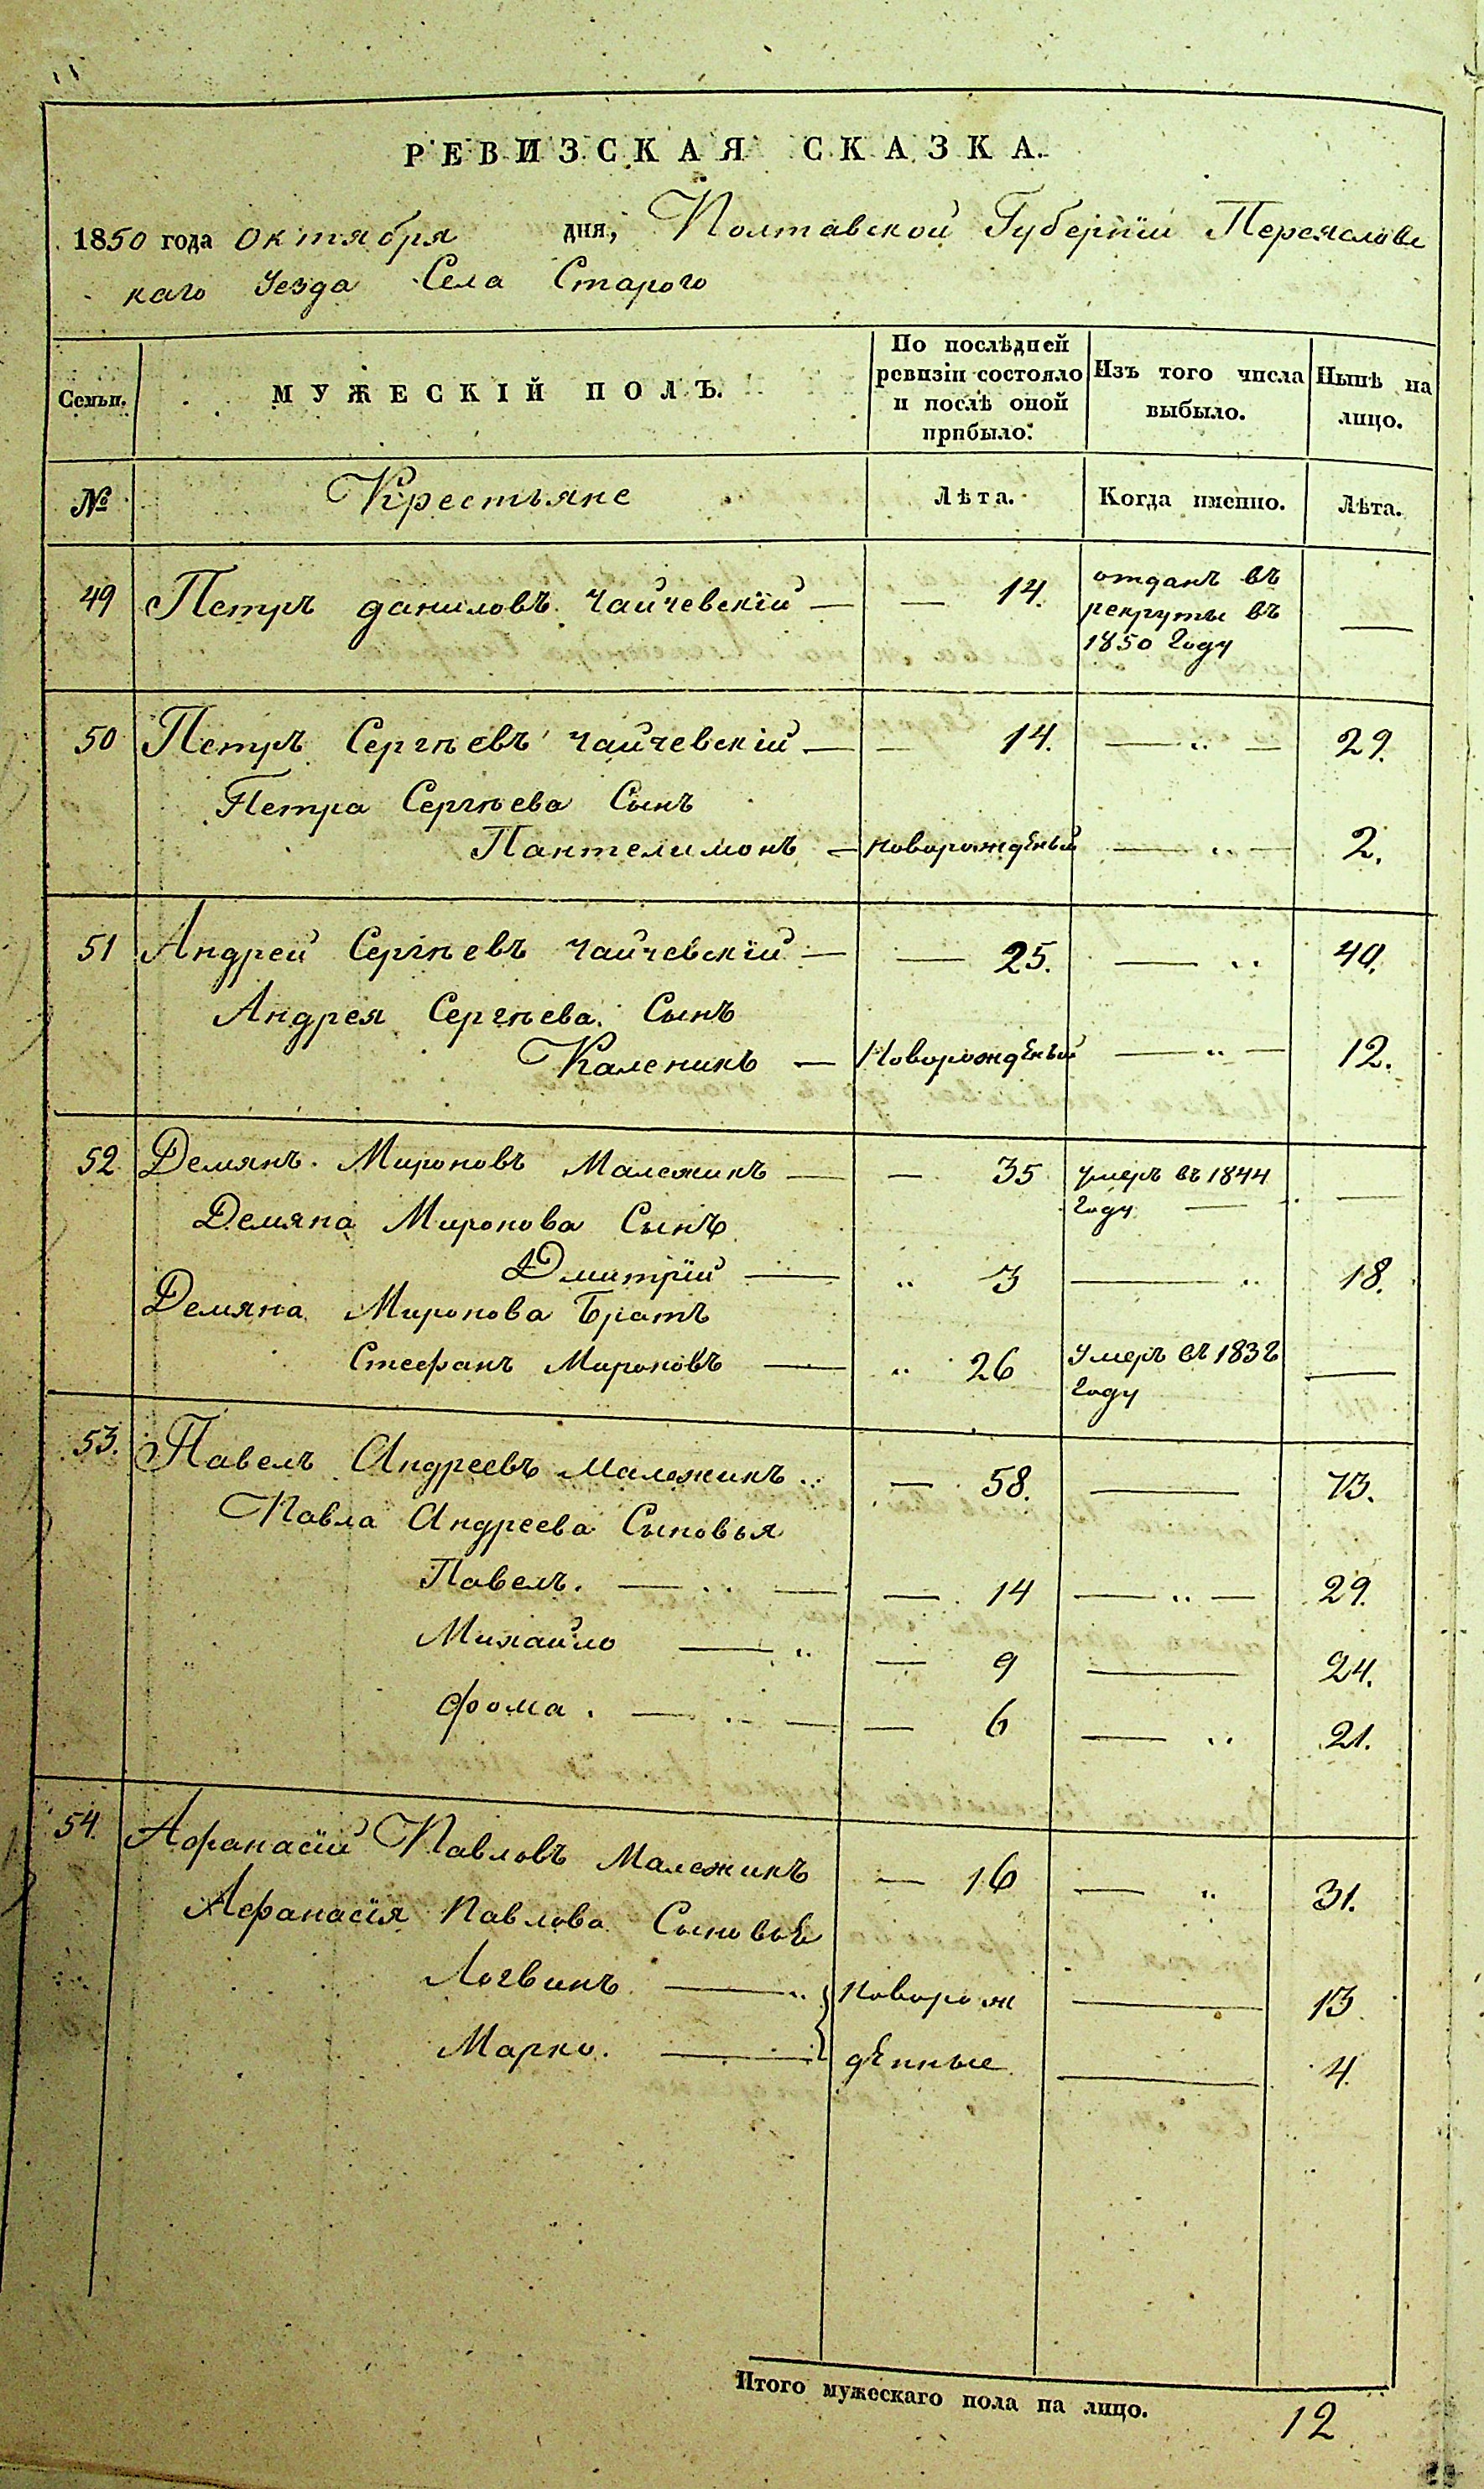 РЕВИЗСКАЯ СКАЗКА.
1850 года октября дня, Полтавской Губерніи Переяславс
каго Уезда Села Старого
Семьи. МУЖЕСКІЙ ПОЛЪ. По послѣдней ревизіи состояло и послѣ оной прибыло. Изъ того числа выбыло. Нынѣ на лицо.
№ Крестьяне Лѣта. Когда именно. Лѣта.
49 Петръ даниловъ Чайчевскій — — 14. отданъ въ
рекруты въ —
1850 году
50 Петръ Сергѣевъ Чайчевскій — — 14. — „ — 29.
Петра Сергѣева Сынъ
Пантелимонъ — новорожденый — „ — 2.
51 Андрей Сергѣевъ Чайчевскій — — 25. — „ 40.
Андрея Сергѣева Сынъ
Каленикъ — Новорожденый — „ — 12.
52 Демянъ Мироновъ Малежикъ — — 35 умеръ въ 1844 —
году —
Демяна Миронова Сынъ
Дмитрій — „ 3 — „ 18.
Демяна Миронова Братъ
Стефанъ Мироновъ — „ 26 Умеръ въ 1838 —
году
53. Павелъ Андреевъ Малежикъ „ — 58. — 73.
Павла Андреева Сыновья
Павелъ. — „ — — 14 — „ — 29.
Михайло — „ — 9 — 24.
Фома. — „ — — 6 — „ 21.
54. Афанасій Павловъ Малежикъ — 16 — „ 31.
Афанасія Павлова Сыновье
Логвинъ — „ новорож — 13
Марко. — денные — 4.
Итого мужескаго пола на лицо. 12